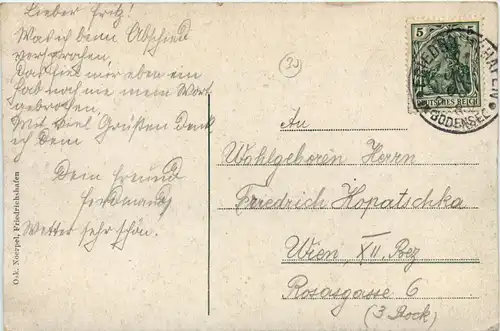 Lieber Fritz!
Was ich beim Abschied
versprochen,
das fiel mir eben ein
Hab noch nie mein Wort
gebrochen
Mit viel Grüßen denk
ich Dein
Dein Freund
Ferdinand
Wetter sehr schön.
Osk. Noerpel, Friedrichshafen
30
5
DEUTSCHES REICH
FRIEDRICHSHAFEN
BODENSEE
An
Wohlgeboren Herrn
Friedrich Hopatschka
Wien XII. Bez
Rosasgasse 6
(3 Stock)